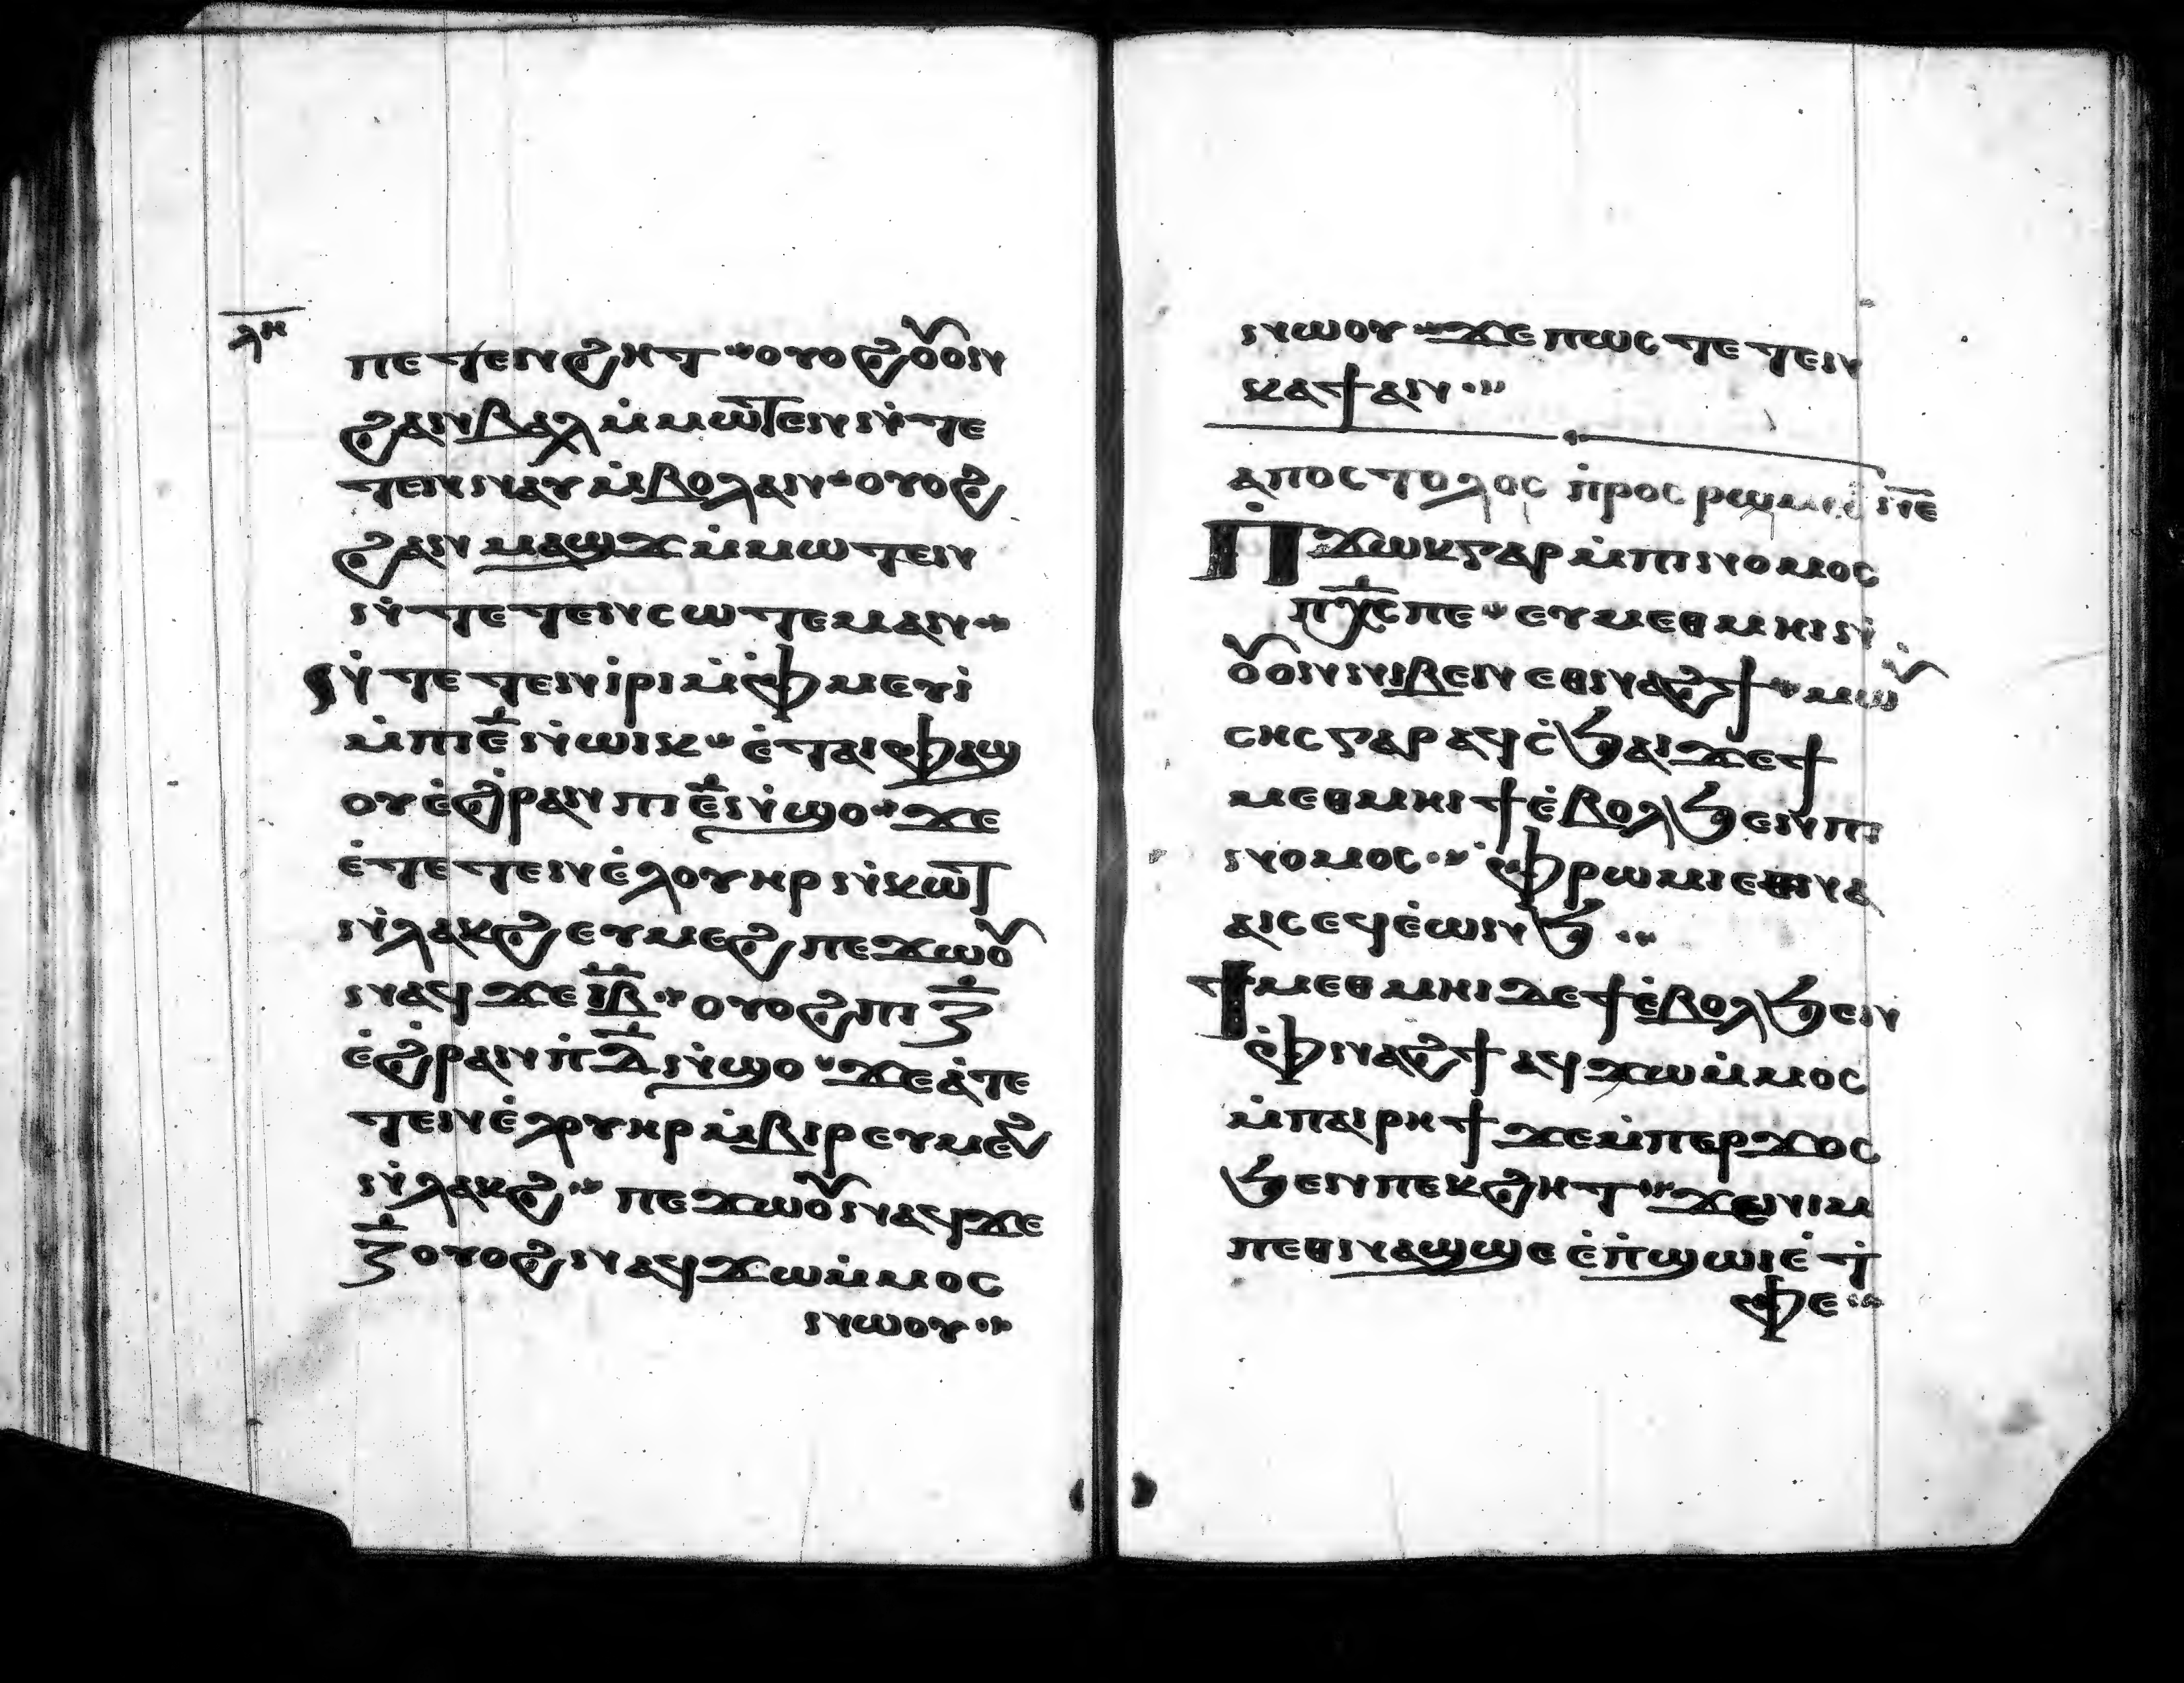 ⲗⲏ
ⲡⲉⲧⲉⲛϩⲏⲧ ⁘ ⲟⲩⲟϩ ⲟ̀ⲟⲛ
ϩⲁⲛⲃⲁⲗ ⲙ̀ⲙⲱⲧⲉⲛ ⲛ̀ⲧⲉ
ⲧⲉⲛⲛⲁⲩ ⲙ̀ⲃⲟⲗ ⲁⲛ ⁘ ⲟⲩⲟϩ
ϩⲁⲛⲙⲁϣϫ ⲙ̀ⲙⲱⲧⲉⲛ
ⲛ̀ⲧⲉⲧⲉⲛⲥⲱⲧⲉⲙ ⲁⲛ ⁘
ⲛ̀ⲧⲉⲧⲉⲛⲓ̀ⲣⲓ ⲙ̀ⲫ̀ⲙⲉⲩⲓ̀
ⲙ̀ⲡⲓⲉ̅ ⲛ̀ⲱⲓⲕ ⁘ ⲉ̀ⲧⲁⲓⲫⲁϣ
ⲟⲩ ⲉ̀ϩ̀ⲣⲁⲛ ⲡⲓⲉ̅ ⲛ̀ϣⲟ ⁘ ϫⲉ
ⲉ̀ⲧⲉⲧⲉⲛⲉ̀ⲗ ⲟⲩⲏⲣ ⲛ̀ⲕⲱⲧ
ⲛ̀ⲗⲁⲕϩ ⲉⲩⲙⲉϩ ⲡⲉϫⲱⲟⲩ
ⲛⲁϥ ϫⲉ ⲓ̅ⲃ̅ ⁘ ⲟⲩⲟϩ ⲡⲓⲍ̅
ⲉ̀ϩ̀ⲣⲁⲛ ⲡ̀ⲇ̅ ⲛ̀ϣⲟ ⁘ ϫⲉ ⲁ̀ⲧⲉ
ⲧⲉⲛⲉ̀ⲗ ⲟⲩⲏⲣ ⲙ̀ⲃⲓⲣ ⲉⲩⲙⲉϩ
ⲛ̀ⲗⲁⲕϩ ⁘ ⲡⲉϫⲱⲟⲩ ⲛⲁϥ ϫⲉ
ⲍ̅ ⲟⲩⲟϩ ⲛⲁϥϫⲱ ⲙ̀ⲙⲟⲥ
ⲛⲱⲟⲩ ⁘
ⲛⲱⲟⲩ ⁘ ϫⲉ ⲡⲱⲥ ⲧⲉⲧⲉⲛ
ⲕⲁϯ ⲁⲛ ⁘
ⲁⲡⲟⲥⲧⲟⲗⲟⲥ ⲡ̀ⲣⲟⲥ ⲣⲱⲙⲉⲟⲥ ⲛ̅ⲉ̅
Ⲡ̀ϫⲱⲕ ⲅⲁⲣ ⲙ̀ⲡⲓⲛⲟⲙⲟⲥ
ⲡⲭ̅ⲥ ⲡⲉ ⁘ ⲉⲩⲙⲉⲑⲙⲏⲓ ⲛ̀
ⲟⲩⲟⲛ ⲛⲓⲃⲉⲛ ⲉⲑⲛⲁϩϯ ⁘ ⲙⲱⲩ
ⲥⲏⲥ ⲅⲁⲣ ⲁϥⲥ̀ϧⲁⲓ ϫⲉ ϯ
ⲙⲉⲑⲙⲏⲓ ϯ ⲉ̀ⲃⲟⲗ ϧⲉⲛ ⲡⲓ
ⲛⲟⲙⲟⲥ ⁘ ⲫ̀ⲣⲱⲙⲓ ⲉⲑⲛⲁ
ⲁⲓⲥ ⲉϥⲉ̀ⲱⲛϧ ⁘
Ϯⲙⲉⲑⲙⲏⲓ ⲇⲉ ϯ ⲉ̀ⲃⲟⲗ ϧⲉⲛ
ⲫ̀ⲛⲁϩϯ ⲁϥϫⲱ ⲙ̀ⲙⲟⲥ
ⲙ̀ⲡⲁⲓⲣⲏϯ ϫⲉ ⲙ̀ⲡⲉⲣϫⲟⲥ
ϧⲉⲛ ⲡⲉⲕϩⲏⲧ ⁘ ϫⲉ ⲛⲓⲙ
ⲡⲉⲑⲛⲁϣϣⲉ ⲉ̀ⲡ̀ϣⲱⲓ ⲉ̀ⲧ̀
ⲫⲉ ⁘